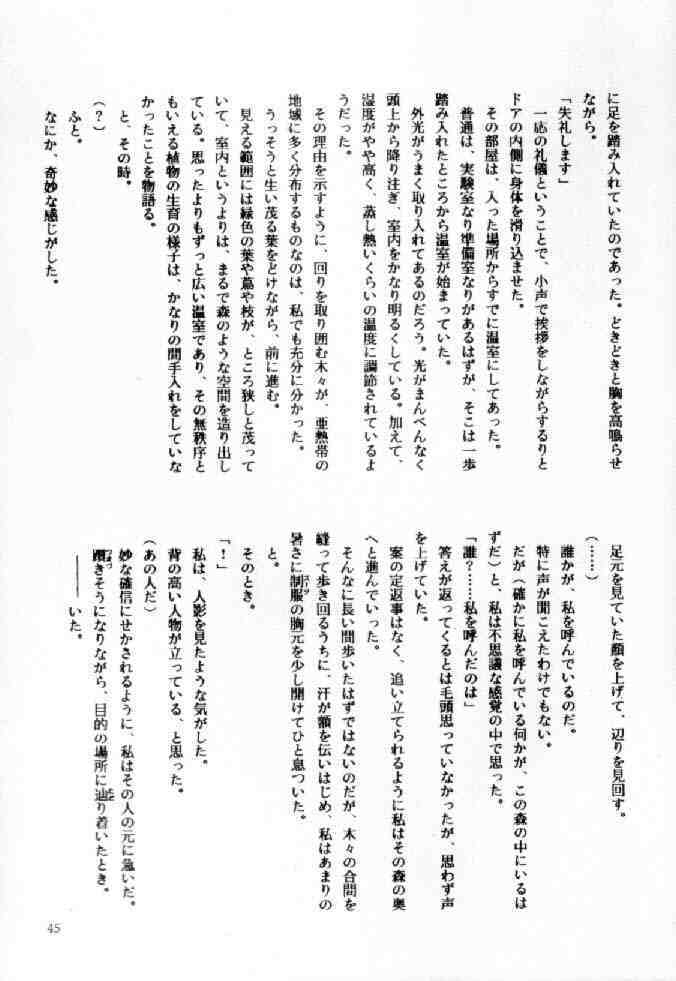 に足を踏み入れていたのであった。どきどきと胸を高鳴らせ
ながら。
「失礼します」
一応の礼儀ということで、小声で挨拶をしながらするりと
ドアの内側に身体を滑り込ませた。
その部屋は、入った場所からすでに温室にしてあった。
普通は、実験室なり準備室なりがあるはずが、そこは一歩
踏み入れたところから温室が始まっていた。
外光がうまく取り入れてあるのだろう。光がまんべんなく
頭上から降り注ぎ、室内をかなり明るくしている。加えて、
湿度がやや高く、蒸し熱いくらいの温度に調節されているよ
うだった。
その理由を示すように、回りを取り囲む木々が、亜熱帯の
地域に多く分布するものなのは、私でも充分に分かった。
うっそうと生い茂る葉をどけながら、前に進む。
見える範囲には緑色の葉や蔦や枝が、ところ狭しと茂って
いて、室内というよりは、まるで森のような空間を造り出し
ている。思ったよりもずっと広い温室であり、その無秩序と
もいえる植物の生育の様子は、かなりの間手入れをしていな
かったことを物語る。
と、その時。
（？）
ふと。
なにか、奇妙な感じがした。
足元を見ていた顔を上げて、辺りを見回す。
（……）
誰かが、私を呼んでいるのだ。
特に声が聞こえたわけでもない。
だが（確かに私を呼んでいる何かが、この森の中にいるは
ずだ）と、私は不思議な感覚の中で思った。
「誰？……私を呼んだのは」
答えが返ってくるとは毛頭思っていなかったが、思わず声
を上げていた。
案の定返事はなく、追い立てられるように私はその森の奥
へと進んでいった。
そんなに長い間歩いたはずではないのだが、木々の合間を
縫って歩き回るうちに、汗が額を伝いはじめ、私はあまりの
暑さに制服の胸元を少し開けてひと息ついた。
と。
そのとき。
「！」
私は、人影を見たような気がした。
背の高い人物が立っている、と思った。
（あの人だ）
妙な確信にせかされるように、私はその人の元に急いだ。
躓きそうになりながら、目的の場所に辿り着いたとき。
――いた。
45